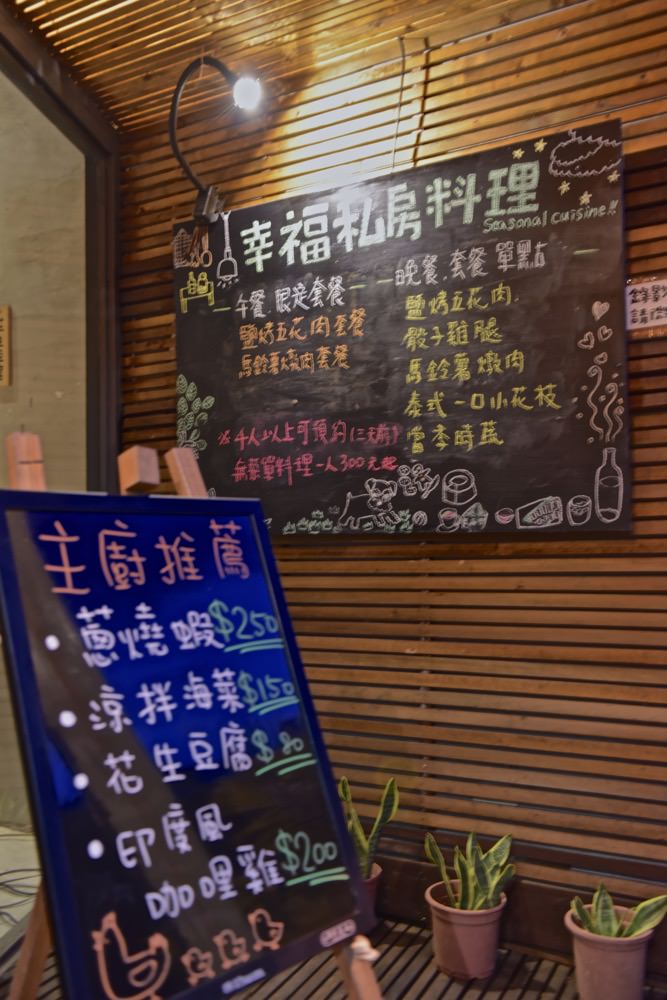 幸福私房料理
Seasonal cuisine!!
午餐.限定套餐
鹽烤五花肉套餐
馬鈴薯燉肉套餐
※4人以上可預約(三天前)
無菜單料理一人300元起
晚餐.套餐 單點
鹽烤五花肉.
骰子雞腿
馬鈴薯燉肉
泰式一口小花枝
當季時蔬
主廚推薦
• 蔥燒蝦$250
• 涼拌海菜$150
• 花生豆腐$80
• 印度風
咖哩雞$200